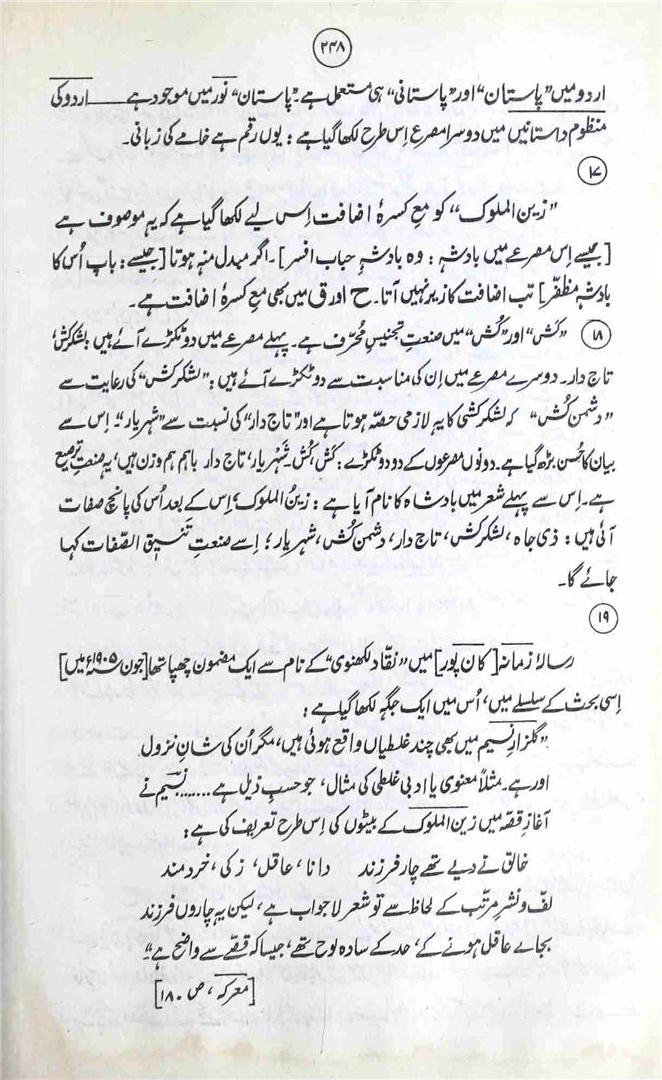 ۲۴۸
اردو میں ”پاستان“ اور ”پاستانی“ ہی مستعمل ہے۔ ”پاستان“ نور میں موجود ہے —— اردو کی
منظوم داستانیں میں دوسرا مصرع اِس طرح لکھا گیا ہے : یوں رقم ہے خامے کی زبانی۔
۱۷
”زین الملوک“ کو مع کسرۂ اضافت اِس لیے لکھا گیا ہے کہ یہ موصوف ہے
[جیسے اِس مصرعے میں بادشہ : وہ بادشہِ حباب افسر]۔ اگر مبدل منہ ہوتا [جیسے : باپ اُس کا
بادشہ مظفّر] تب اضافت کا زیر نہیں آتا۔ ح اور ق میں بھی مع کسرۂ اضافت ہے۔
۱۸ ”کَش“ اور ”کُش“ میں صنعتِ تجنیسِ مُحرّف ہے۔ پہلے مصرعے میں دو ٹکڑے آئے ہیں : لشکر کش،
تاج دار۔ دوسرے مصرعے میں اِن کی مناسبت سے دو ٹکڑے آئے ہیں : ”لشکر کش“ کی رعایت سے
”دشمن کُش“ کہ لشکر کشی کا یہ لازمی حصّہ ہوتا ہے اور ”تاج دار“ کی نسبت سے ”شہریار“۔ اِس سے
بیان کا حُسن بڑھ گیا ہے۔ دونوں مصرعوں کے دو دو ٹکڑے : کَش، کُش۔ شہریار، تاج دار باہم ہم وزن ہیں، یہ صنعتِ ترصیع
ہے۔ اِس سے پہلے شعر میں بادشاہ کا نام آیا ہے : زینُ الملوک، اِس کے بعد اُس کی پانچ صفات
آئی ہیں : ذی جاہ، لشکر کش، تاج دار، دشمن کُش، شہریار؛ اِسے صنعتِ تنسیق الصّفات کہا
جائے گا۔
۱۹
رسالۂ زمانہ [کان پور] میں ”نقّاد لکھنوی“ کے نام سے ایک مضمون چھپا تھا [جون ۱۹۰۵ء میں]
اِسی بحث کے سلسلے میں، اُس میں ایک جگہ لکھا گیا ہے :
”گلزارِ نسیم میں بھی چند غلطیاں واقع ہوئی ہیں، مگر اُن کی شانِ نزول
اور ہے۔ مثلاً معنوی یا ادبی غلطی کی مثال، جو حسبِ ذیل ہے ....... نسیم نے
آغازِ قصّہ میں زین الملوک کے بیٹوں کی اِس طرح تعریف کی ہے :
خالق نے دیے تھے چار فرزند دانا، عاقل، زکی، خردمند
لف و نشرِ مرتّب کے لحاظ سے تو شعر لاجواب ہے، لیکن یہ چاروں فرزند
بجاے عاقل ہونے کے، حد کے سادہ لوح تھے، جیسا کہ قصّے سے واضح ہے“۔
[معرکہ، ص ۱۸۰]